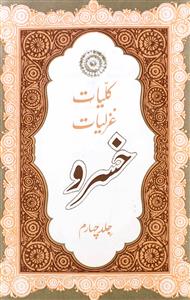 کلیات
غزلیات
خسرو
جلد چہارم